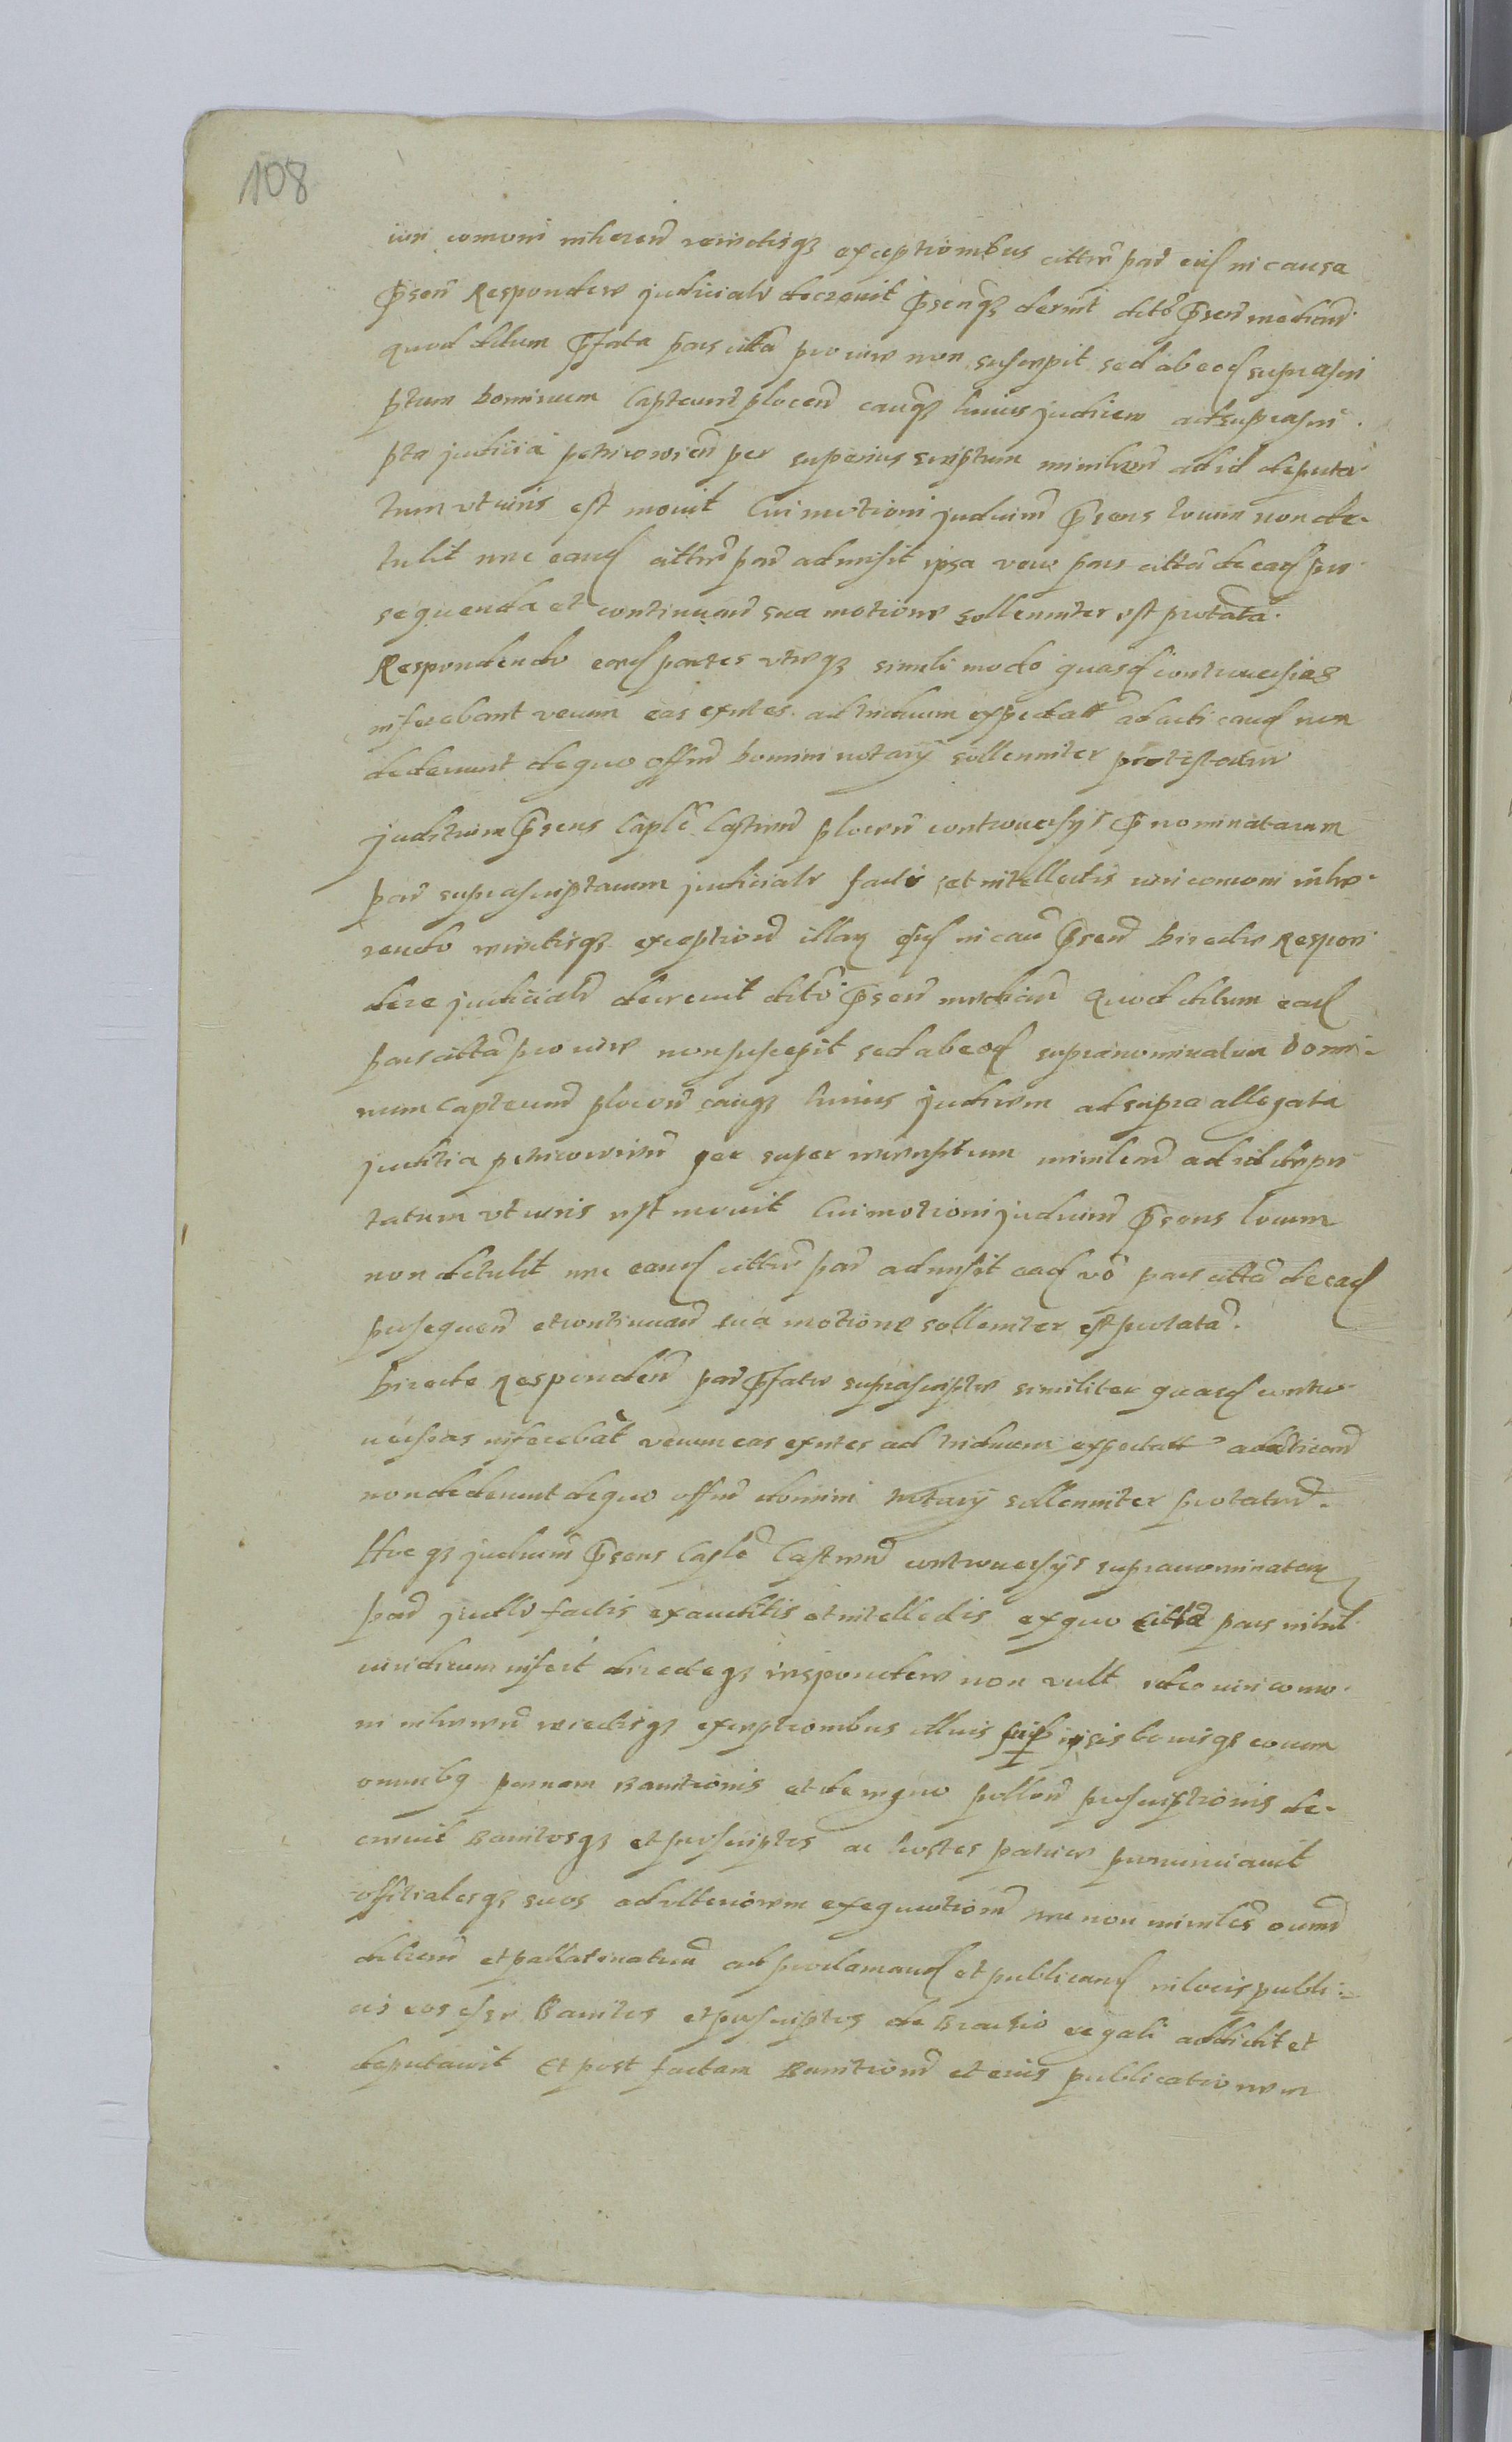 108
iuri comuni inheren reiectisqz exceptionibus cittae par eius in causa
Psen Respondere judicialr decreuit Psenqz decrut dcto Psen mediand
quod dctum Pfata pars citta pro iure non suscepit sed ab eod suprascri
ptum Dominum Capteum plocen cauqz huius judicem ad suprascri
pta judicia petricouien per superius scriptum minlrem ad id deputa
tum vt iuris est mouit Cui motioni judicium Psens locum non de-
tulit nec eand cittae par admisit ipsa vero pars citta de ead pro
sequenda et continuand sua motione sollenniter est protata.
Respondendo eaed partes vtraqz simili modo quasd controuersias
inferebant verum eas exntes ad triduum expectatt ad acti cand non
dederunt de quo offm Domini notarij sollenniter protestatur
juditium Psens Caple Castren plocen controuersijs Pnominatarum
par suprascriptarum judicialr factis et intellectis iuri comoni inhe-
rendo reiectisqz exception illaz eisd in cau Psen Directe Respon
dere judicialr decreuit dcto Psen mediand Quod dctum ead
pars citta pro iure non suscepit sed ab eod supranominatum Domi-
num Capteum plocen cauqz huius judicem ad supra allegata
juditia petricouien per super inscriptum minlrem ad id depu
tatum vt iuris est mouit Cui motioni judicium Psens locum
non detulit nec eand cittae par admisit ead vo pars citta de ead
prosequen et continuand sua motione sollenniter est protata.
Directe Responden par Pfatae suprascriptae similiter quasd contro
uersias inferebat verum eas exntes ad triduum expectatt ad acticand
non dederunt de quo offm domini Notarij sollenniter protatur.
Hocqz judicium Psens Caple Castren controuersijs supranominataz
par judlr factis exauditis et intellectis ex quo citta pars nihil
iuridicum infert directeqz respondere non vult ideo iuri como
ni inheren reiectisqz exceptionibus illius ipsis bonisqz eorum
omnibz poenam Banitionis et denique pollen proscriptionis de-
creuit Banitosqz et proscriptos ac hostes patriae pronunciauit
officialesqz suos ad vlteriorem exequutionem nec non minlem
et pallatinatuum ad proclamand et publicand in locis publi-
cis eos esse Banitos et proscriptos de Brachio regali addidit et
deputauit Et post factam Banition et eius publicationem